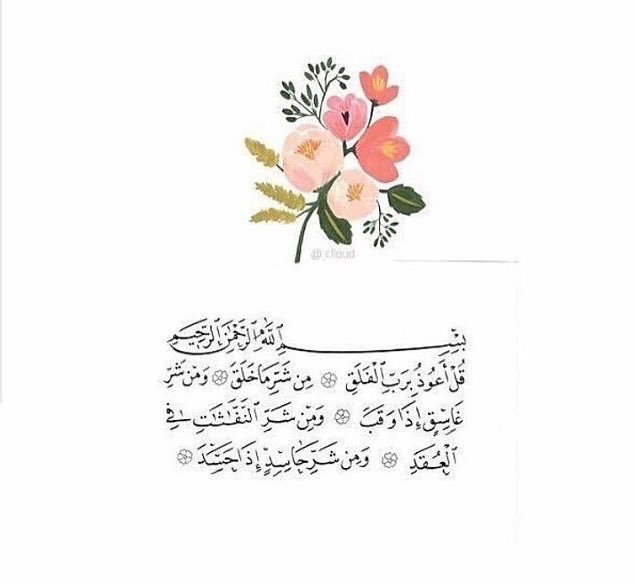 @_cllaud
بِسْمِ ٱللَّهِ ٱلرَّحْمَٰنِ ٱلرَّحِيمِ
قُلْ أَعُوذُ بِرَبِّ ٱلْفَلَقِ ۝ مِن شَرِّ مَا خَلَقَ ۝ وَمِن شَرِّ
غَاسِقٍ إِذَا وَقَبَ ۝ وَمِن شَرِّ ٱلنَّفَّٰثَٰتِ فِي
ٱلْعُقَدِ ۝ وَمِن شَرِّ حَاسِدٍ إِذَا حَسَدَ ۝